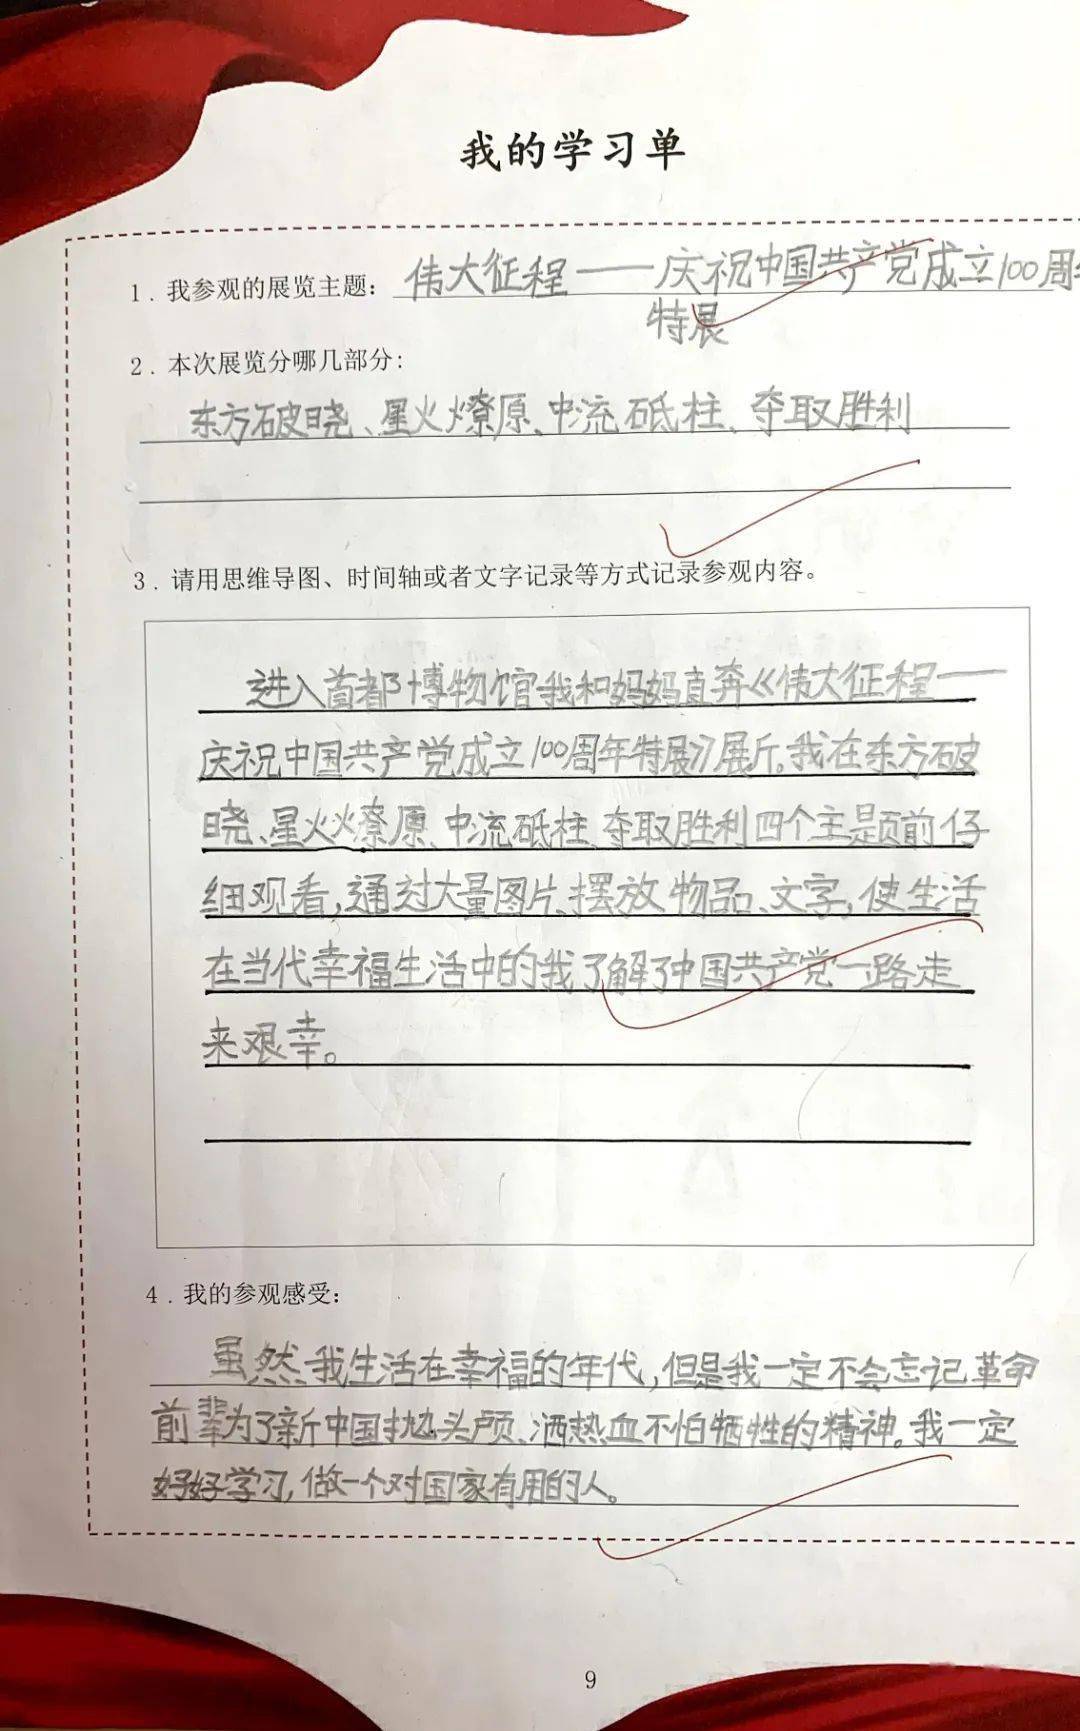 我的学习单
1.我参观的展览主题：伟大征程——庆祝中国共产党成立100周年
特展
2.本次展览分哪几部分：
东方破晓、星火燎原、中流砥柱、夺取胜利
3.请用思维导图、时间轴或者文字记录等方式记录参观内容。
进入首都博物馆我和妈妈直奔《伟大征程——
庆祝中国共产党成立100周年特展》展厅。我在东方破
晓、星火燎原、中流砥柱、夺取胜利四个主题前仔
细观看，通过大量图片、摆放物品、文字，使生活
在当代幸福生活中的我了解了中国共产党一路走
来艰辛。
4.我的参观感受：
虽然我生活在幸福的年代，但是我一定不会忘记革命
前辈为了新中国抛头颅、洒热血不怕牺牲的精神。我一定
好好学习，做一个对国家有用的人。
9